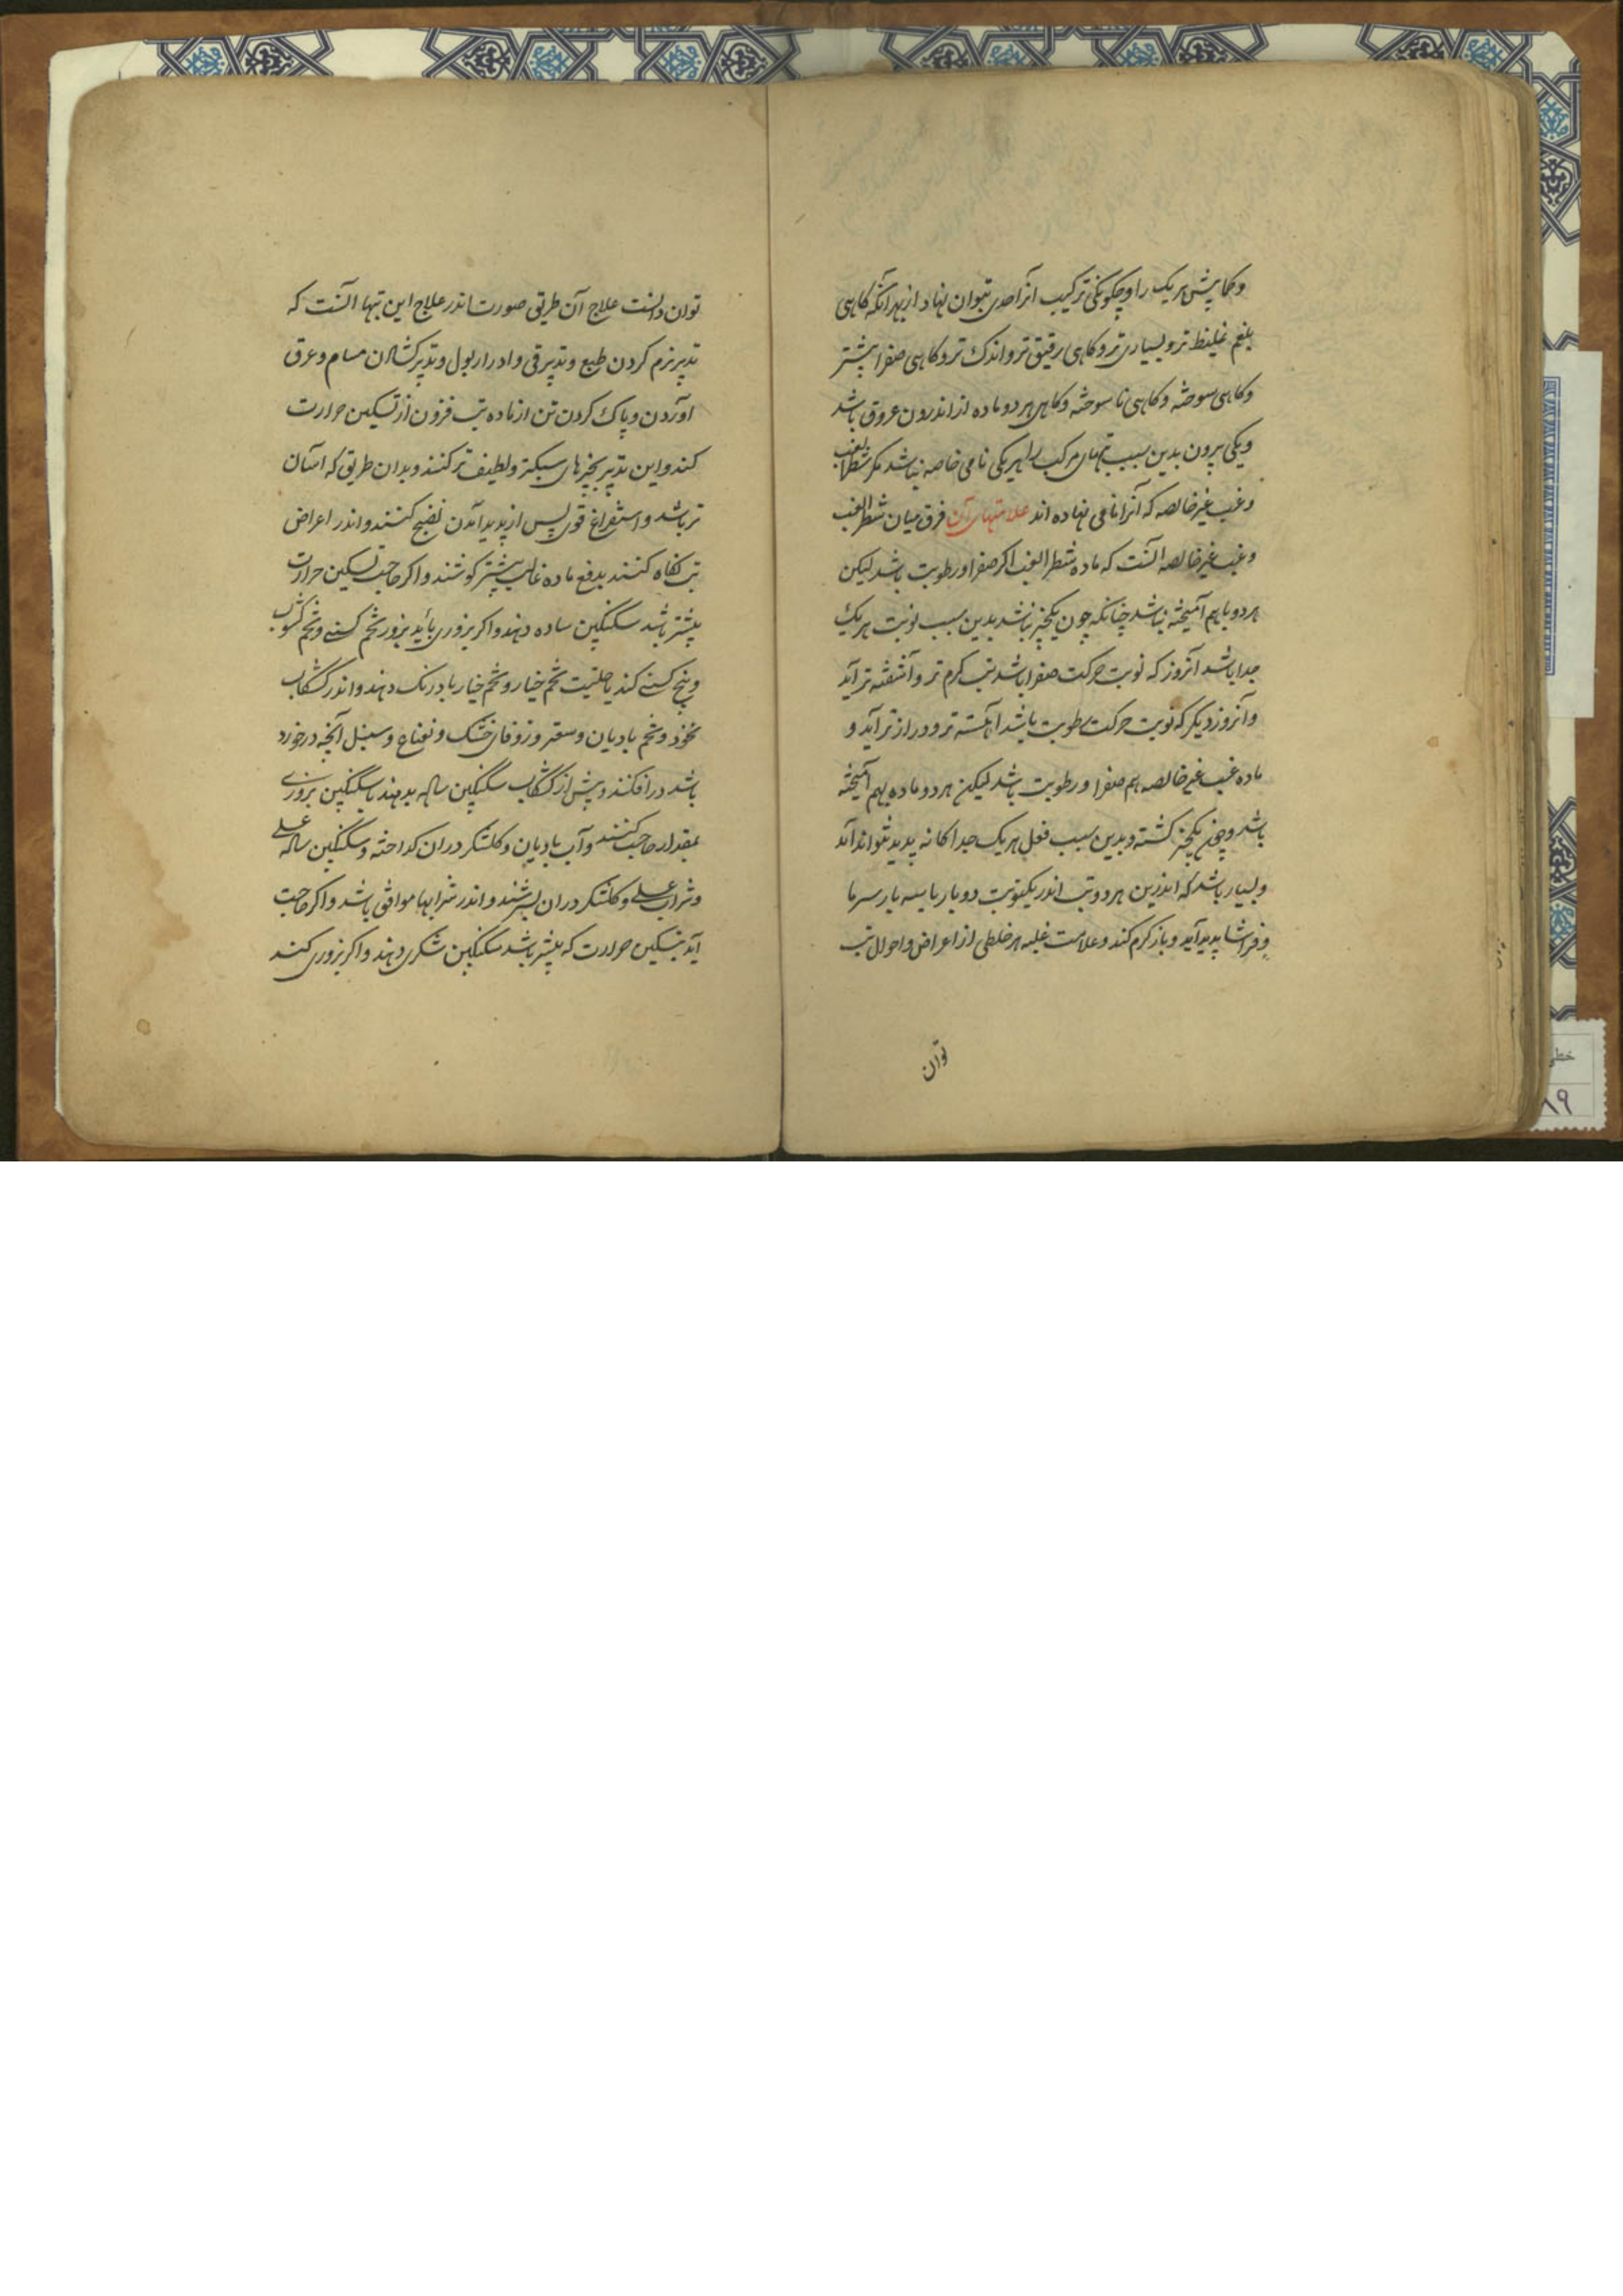 و کما پیش هر یک را و چگونگی ترکیب آنرا حدی نتوان نهاد از بهر آنکه کاهی
بلغم غلیظ تر و بسیاری تر و کاهی رقیق تر و اندک تر و کاهی صفرا بیشتر
و کاهی سوخته و کاهی ناسوخته و کاهی هر دو ماده از اندرون عروق باشد
و یکی برون بدین سبب تبهای مرکب را هر یکی نامی خاصه نباشد مکر شطر الغب
و غب غیر خالصه که آنرا نامی نهاده اند علامتهای آن فرق میان شطر الغب
و غب غیر خالصه آنست که ماده شطر الغب اکر صفرا و رطوبت باشد لیکن
هر دو با هم آمیخته نباشد چنانکه چون یکچیز نباشد بدین سبب نوبت هر یک
جدا باشد آنروز که نوبت حرکت صفرا باشد تب کرم تر و آشفته تر آید
و آنروز دیکر که نوبت حرکت رطوبت باشد آهسته تر و دراز تر آید و
ماده غب غیر خالصه هم صفرا و رطوبت باشد لیکن هر دو ماده بهم آمیخته
باشد و چون یکچیز کشته و بدین سبب فعل هر یک جداکانه پدید نتواند آمد
و بسیار باشد که اندرین هر دو تب اندر یکنوبت دو بار یا سه بار سرما
و فراشا پدید آید و باز کرم کند و علامت غلبه هر خلطی از اعراض و احوال تب
توان
توان دانست علاج آن طریق صورت اندر علاج این تبها آنست که
تدبیر نرم کردن طبع و تدبیر قی و ادرار بول و تدبیر کشادن مسام و عرق
آوردن و پاک کردن تن از ماده تب فزون از تسکین حرارت
کنند و این تدبیر بچیزهای سبکتر و لطیف تر کنند و بدان طریق که آسان
تر باشد و استفراغ قوی پس از پدید آمدن نضج کنند و اندر اعراض
تب نکاه کنند بدفع ماده غالب بیشتر کوشند و اکر حاجت تسکین حرارت
بیشتر باشد سکنکبین ساده دهند و اکر بزوری باید بزور تخم کسنی و تخم کشوث
و بیخ کسنی کند یا تخم خیار و تخم خیار بادرنک دهند و اندر کشکاب
نخود و تخم بادیان و سعتر و زوفای خشک و نعناع و سنبل آنچه در خورد
باشد در افکنند و پیش از کشکاب سکنکبین ساده بدهند یا سکنکبین بزوری
بمقدار حاجت کنند و آب بادیان و کلشکر در آن کداخته و سکنکبین ساده عسلی
و شراب عسلی و کلشکر در آن بسرشند و اندر شرابها موافق باشد و اکر حاجت
آید بتسکین حرارت که بیشتر باشد سکنکبین شکری دهند و اکر بزوری کند
خطی
۸۹